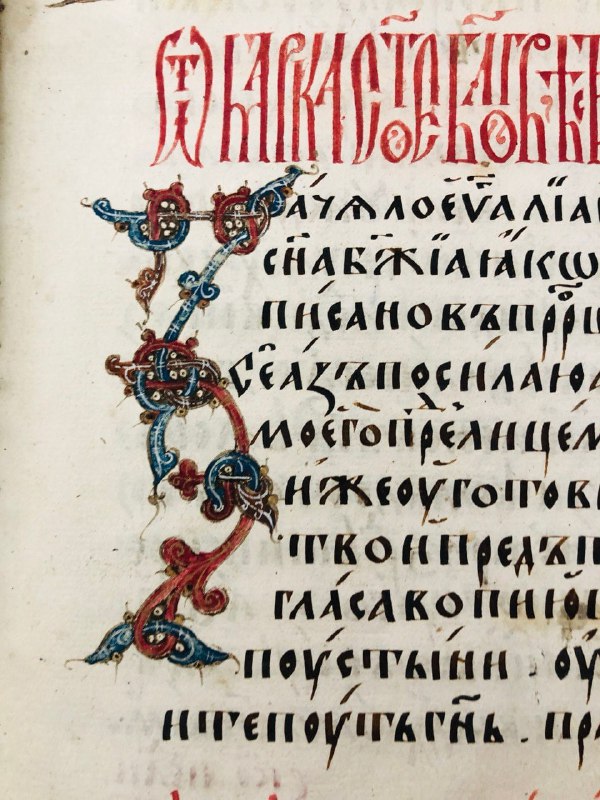 Ѿ МАРКА СТ҃ОЕ БЛ҃ГОВѢС
Зачѧло еѵ҃аліа
сн҃а бж҃їа ꙗкѡ
писано въ прⷪрц
Се азъ посилаю а
моего прⷣе лицем
иже оуготови
твои предъ т
гласа вопиюі
поустыни. оу
ите поуть гн҃ь. пра